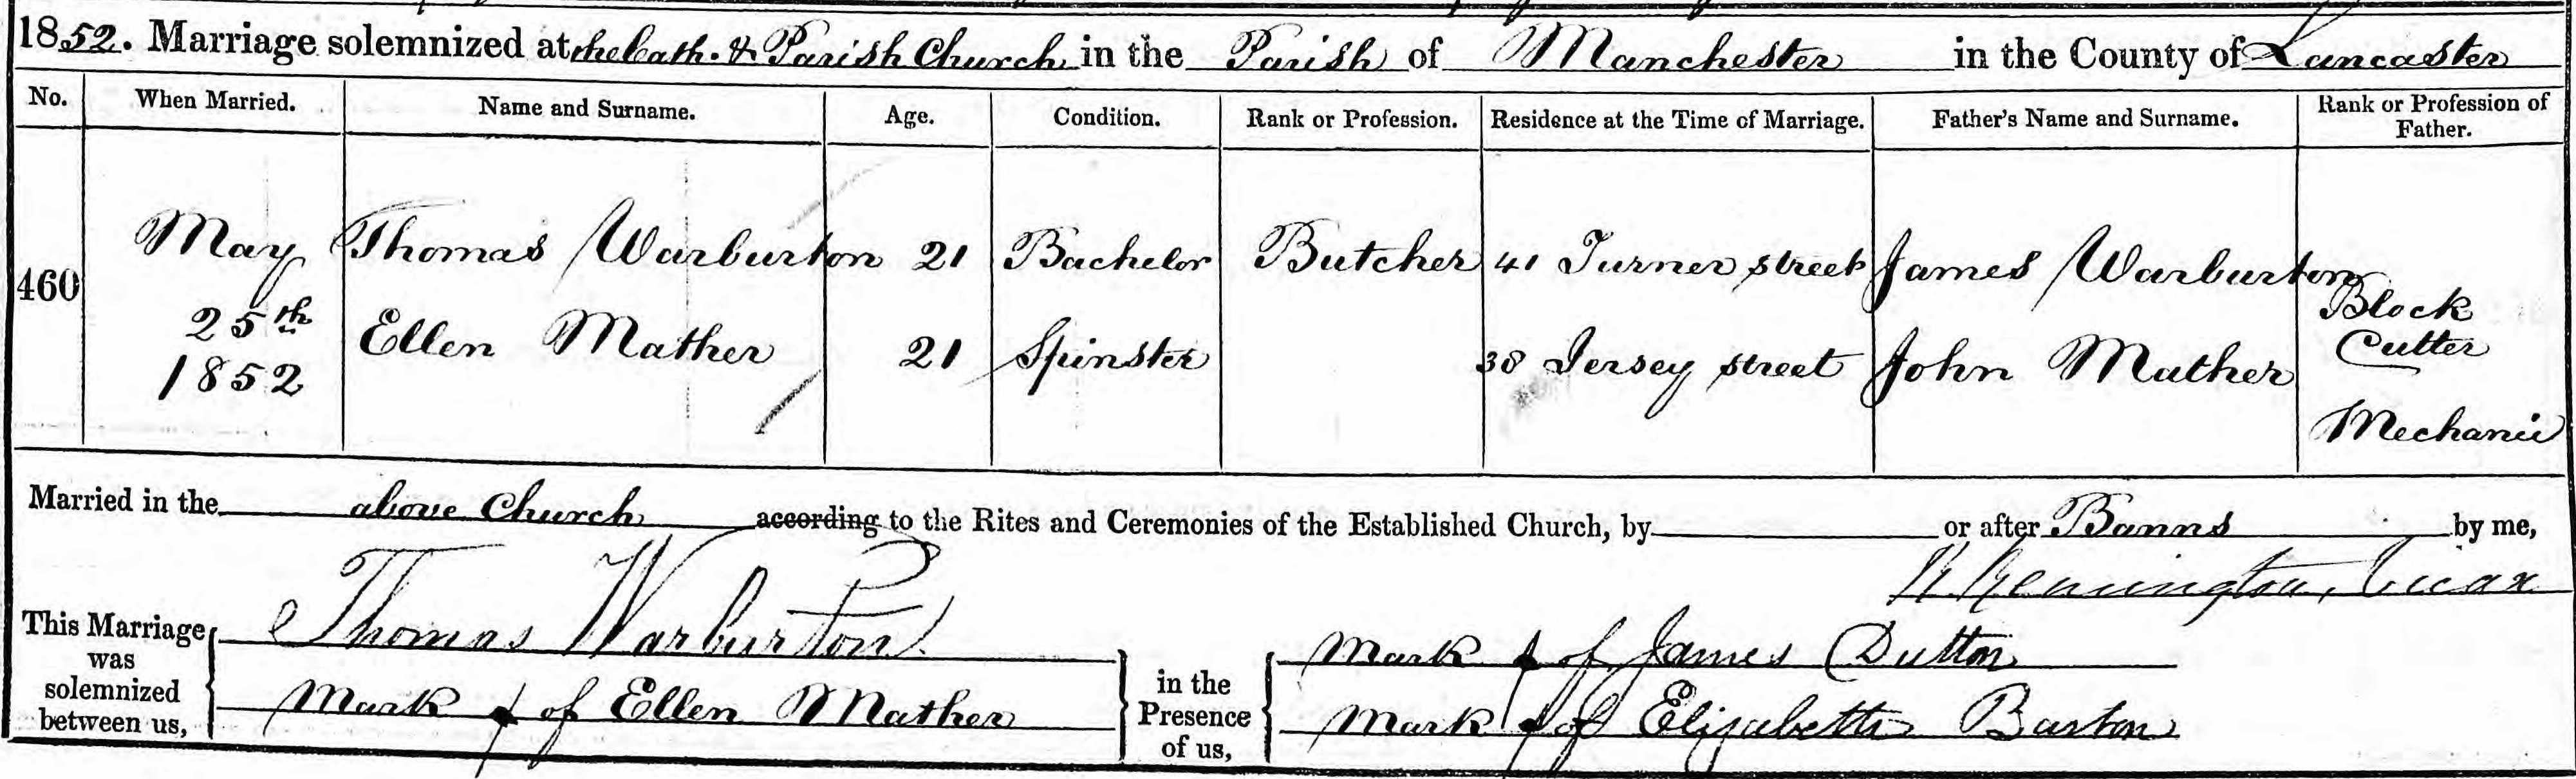 1852. Marriage solemnized at the Cath. & Parish Church in the Parish of Manchester in the County of Lancaster
No. When Married. Name and Surname. Age. Condition. Rank or Profession. Residence at the Time of Marriage. Father's Name and Surname. Rank or Profession of Father.
460 May 25th 1852
Thomas Warburton 21 Bachelor Butcher 41 Turner street James Warburton Block Cutter
Ellen Mather 21 Spinster 38 Jersey street John Mather Mechanic
Married in the above Church according to the Rites and Ceremonies of the Established Church, by or after Banns by me,
Remington, Vicar
This Marriage was solemnized between us,
Thomas Warburton
Mark of Ellen Mather
in the Presence of us,
Mark of James Dutton
Mark of Elizabeth Barton